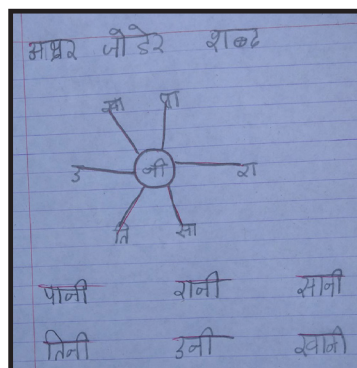 अक्षर जोडेर शब्द
खा पा
उ नी रा
ति सा
पानी रानी सानी
तिनी उनी खानी